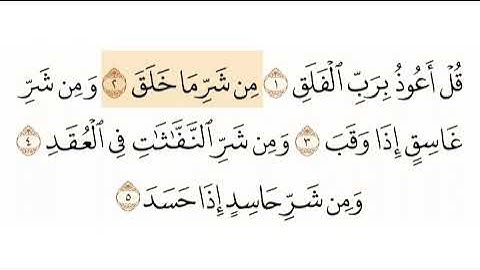 قُلۡ أَعُوذُ بِرَبِّ ٱلۡفَلَقِ ١ مِن شَرِّ مَا خَلَقَ ٢ وَمِن شَرِّ
غَاسِقٍ إِذَا وَقَبَ ٣ وَمِن شَرِّ ٱلنَّفَّـٰثَـٰتِ فِي ٱلۡعُقَدِ ٤
وَمِن شَرِّ حَاسِدٍ إِذَا حَسَدَ ٥